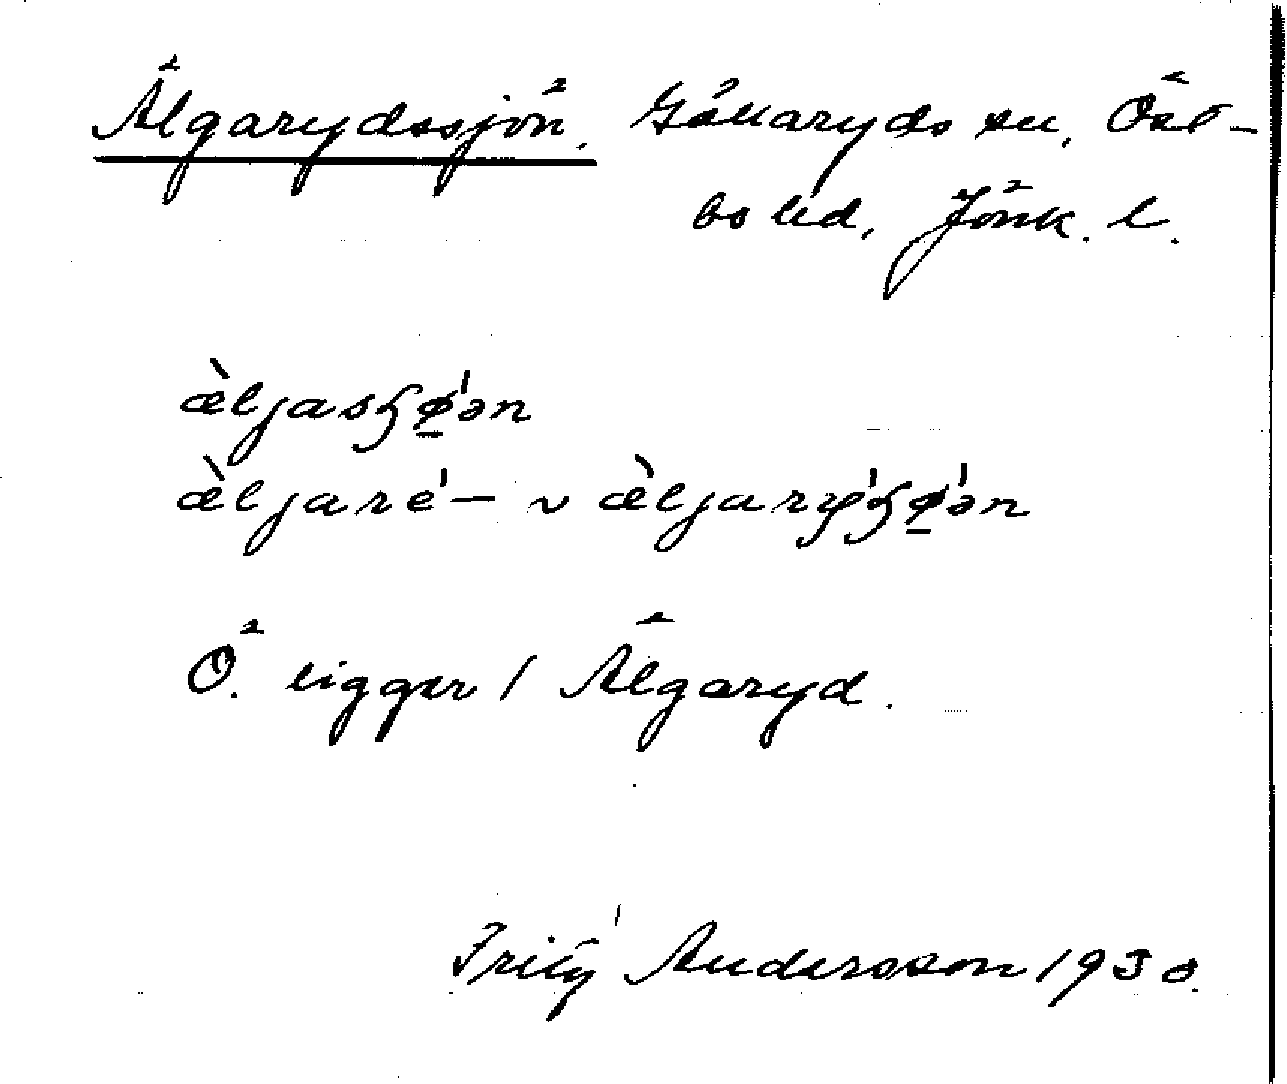 Älgarydssjön. Gåkaryds sn, Öst-
bo hd, Jönk. l.
æ̀ljasɧǿ̲ən
æ̀ljaré– ~ æ̀ljarýɧǿ̲ən
Ö. ligger i Älgaryd.
Fritz Andersson 1930.